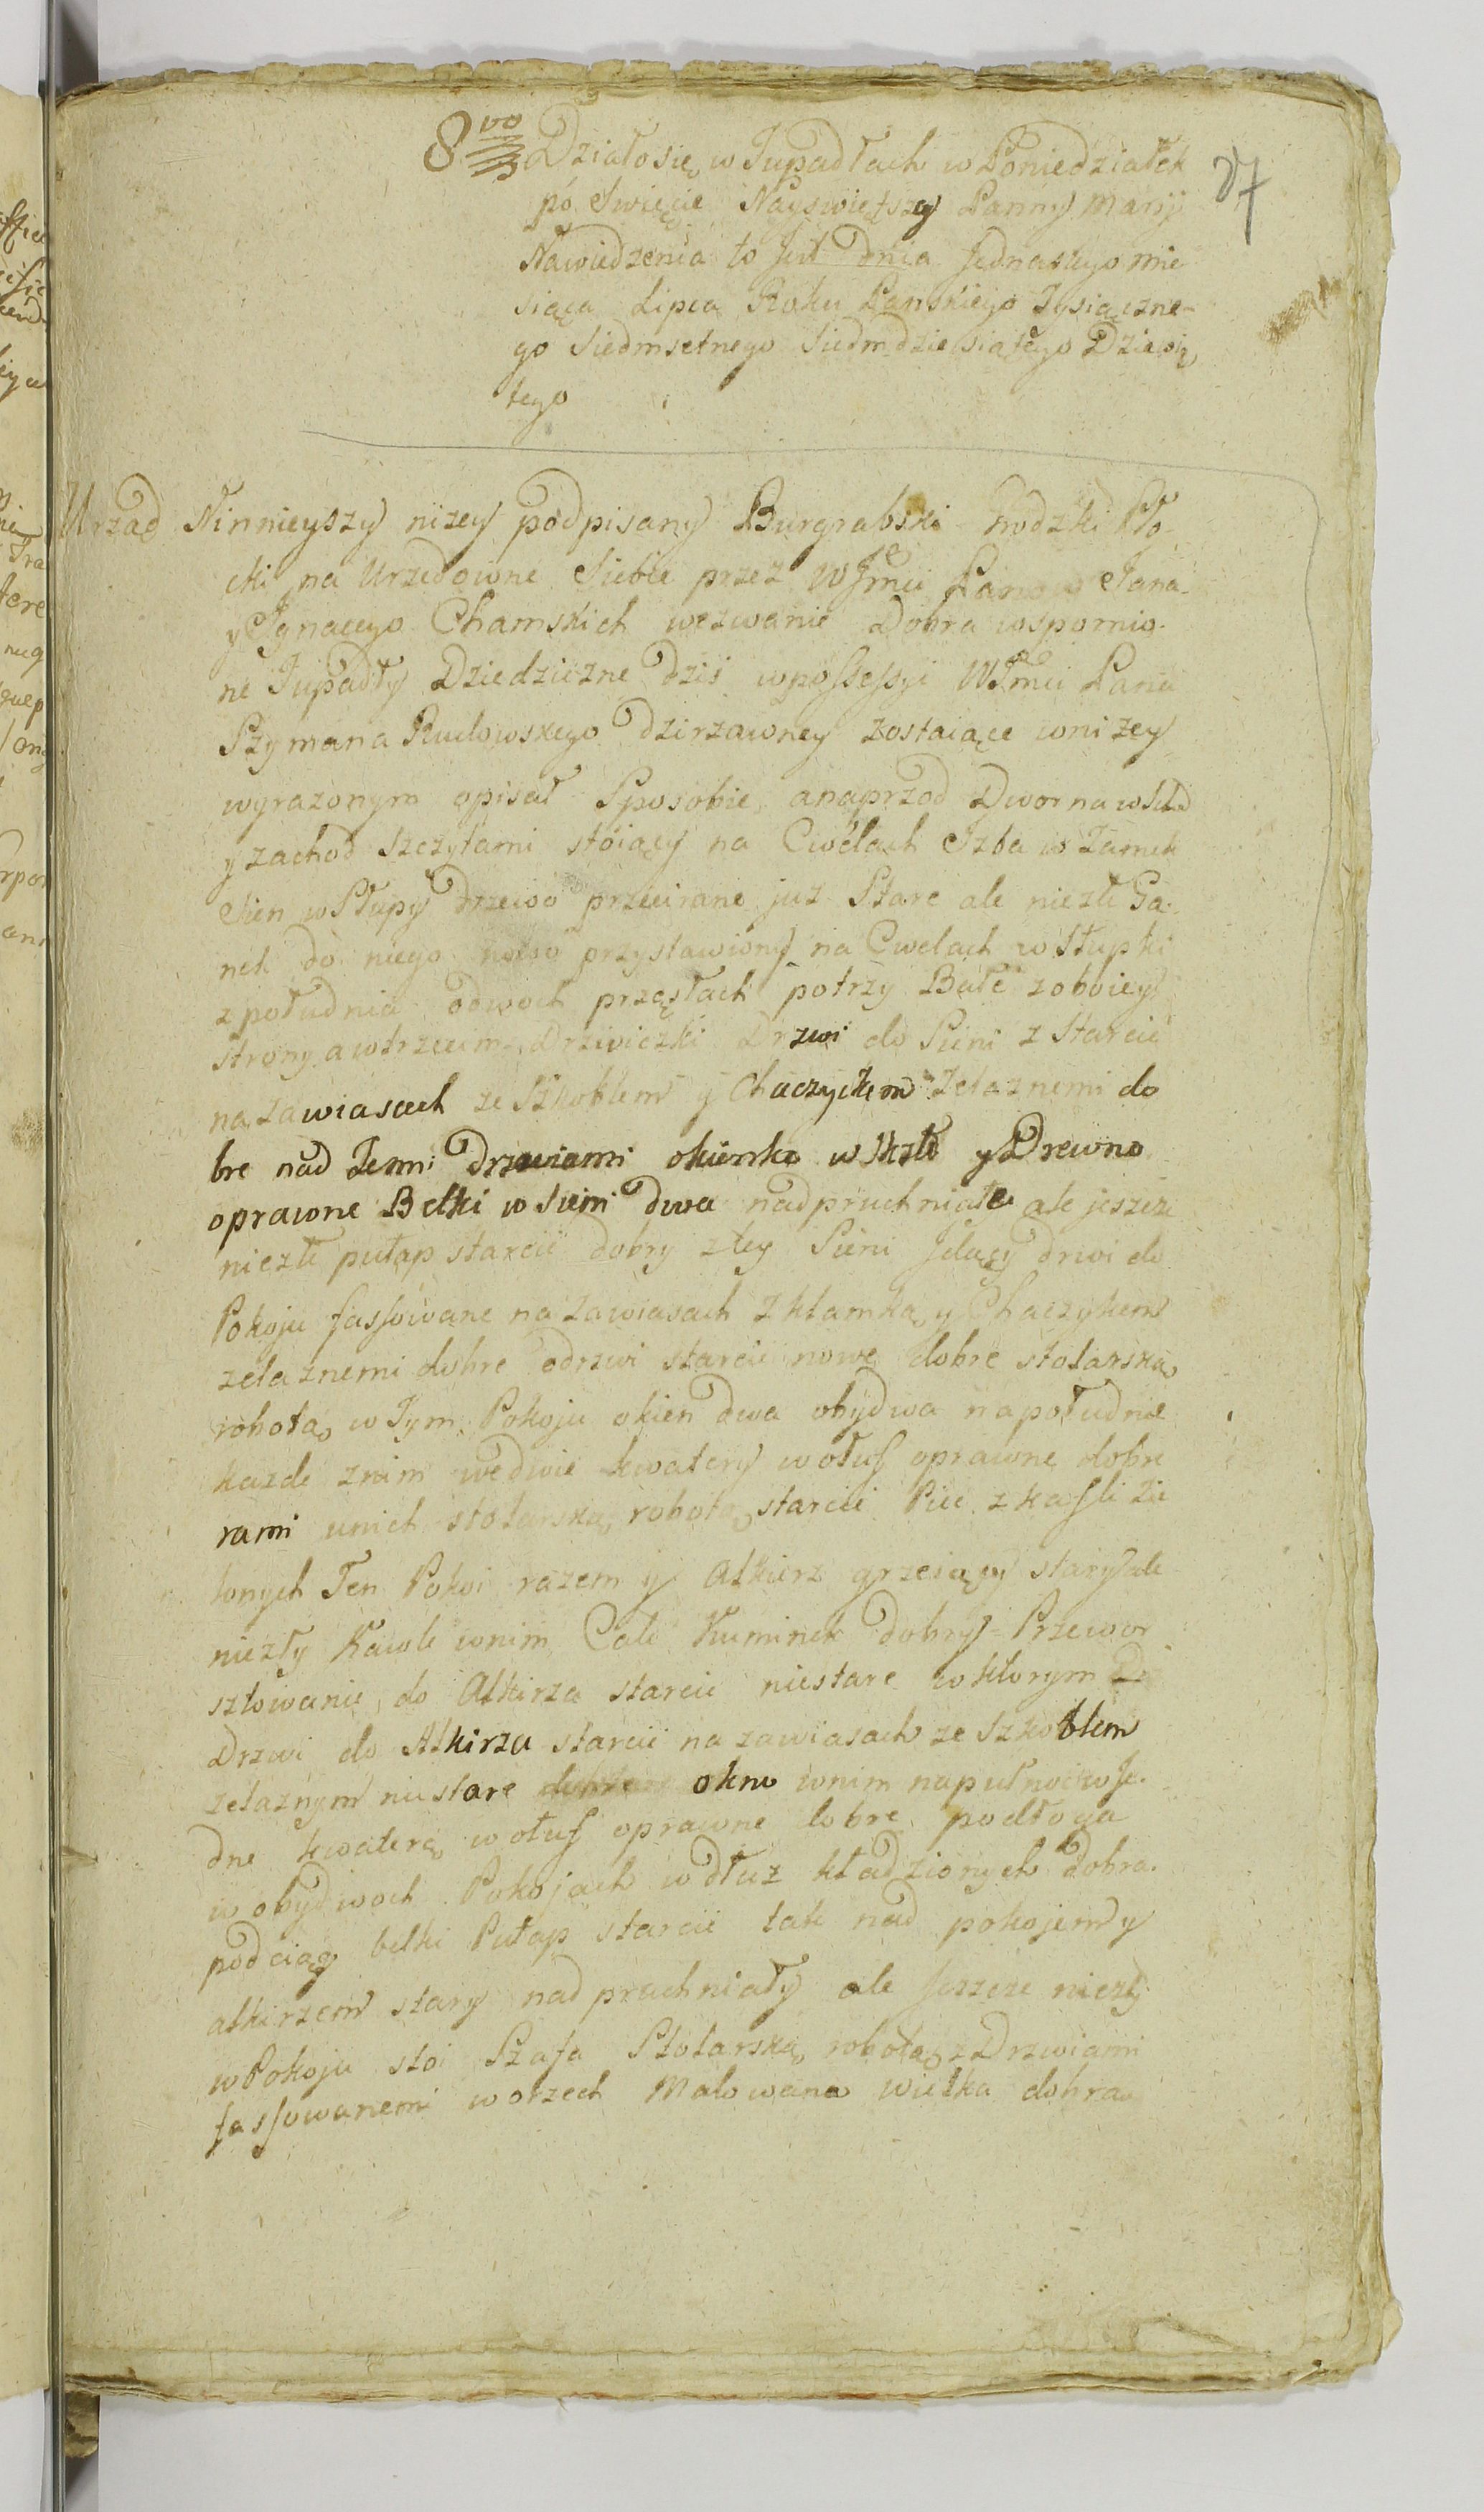 8vo Działo się w Tupadłach w Poniedziałek
po Swięcie Nayswiętszey Panny Maryi
Nawiedzenia to jest dnia Jednastego mie
siąca Lipca Roku Panskiego Tysiączne-
go Siedmsetnego Siedmdziesiątego Dziewią
tego
Urzad Ninnieyszy nizey podpisany Burgrabski Grodzki Pło-
cki na Urzędowne Siebie przez WJmci Panow Jana
y Jgnacego Chamskich wezwanie Dobra wspomnio-
ne Tupadły Dziedziczne dzis w possessyi WJmci Pana
Szymana Rudowskiego dzirzawney zostaiące w nizey
wyrazonym opisał Sposobie, a naprzod Dwor na wschod
y zachod szczytami stoiący na Cwelach Jzba w Zamek
Sien w Słupy drzewo przecirane juz Stare ale niezłe Ga-
nek do niego nowo przystawiony na Cwelach w Słupki
z południa o dwoch przęsłach po trzy Bale z oboiey
strony a w trzecim Drzwiczki Drzwi do Sieni z Starcic
na zawiasach ze Szkoblem y Chaczykem zelaznemi do
bre nad Temi drzwiami okienko w Szkło y Drewno
oprawne Belki w Sieni dwa nadpruchniałe ale jeszcze
niezłe pułap starcic dobry z tey Sieni Jdący drwi do
Pokoju fassowane na zawiasach z klamką y Chaczykem
zelaznemi dobre odrzwi starcic nowe dobre stolarską
robotą w Tym Pokoju okien dwa obydwa na południe
kazde z nim we dwie kwatery w ołuf oprawne dobre
rami u nich stolarską robotą starcic Piec z kafli Zie
lonych Ten Pokoi razem y Alkierz grzeiący stary ale
niezły Kawle w nim Całe Kuminek dobry Przewor
sztowanie do Alkirza starcic niestare w ktorym
Drzwi do Alkirza starcic na zawiasach ze Szkoblem
zelaznym niestare okno w nim na pułnoc w Je-
dne kwaterę w ołuf oprawne dobre podłoga
w obydwoch Pokojach w dłuz kładzionych dobra
podciąg belki Pułap starcic tak nad pokojem y
alkirzem stary nadpruchniały ale Jeszcze niezły
w Pokoju stoi Szafa Stolarską robotą z Drzwiami
fassowanemi w orzech Malowana wielka dobra